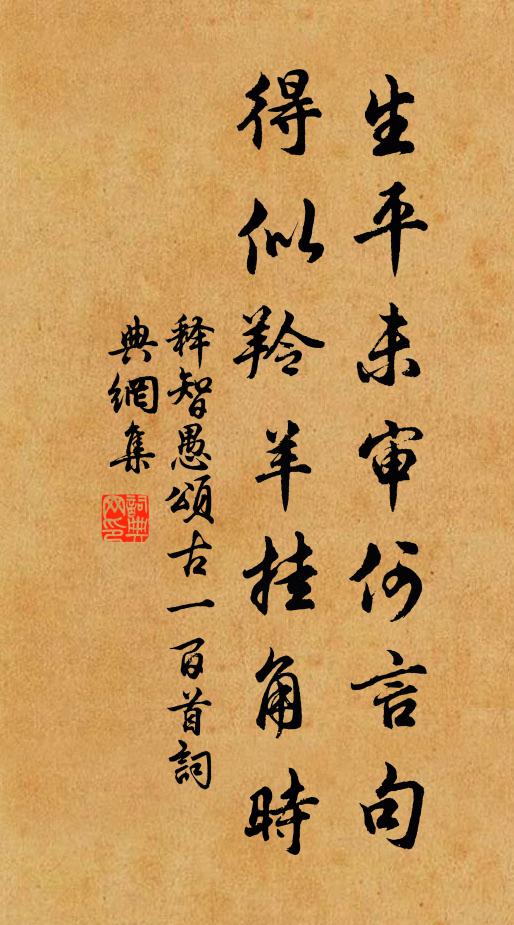 生平未审何言句
得似羚羊挂角時
释智愚頌古一百首詞
典網集
詞典
网印